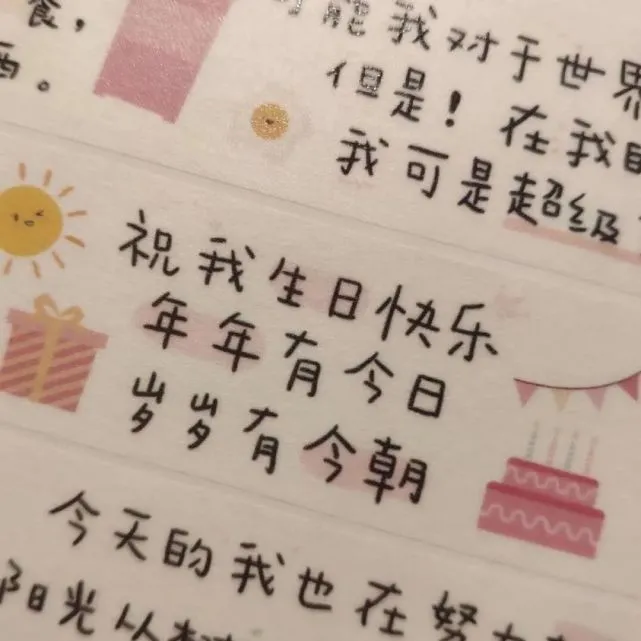 食，
酒。
可能我对于世界
但是！在我自
我可是超级
祝我生日快乐
年年有今日
岁岁有今朝
今天的我也在努力
阳光从